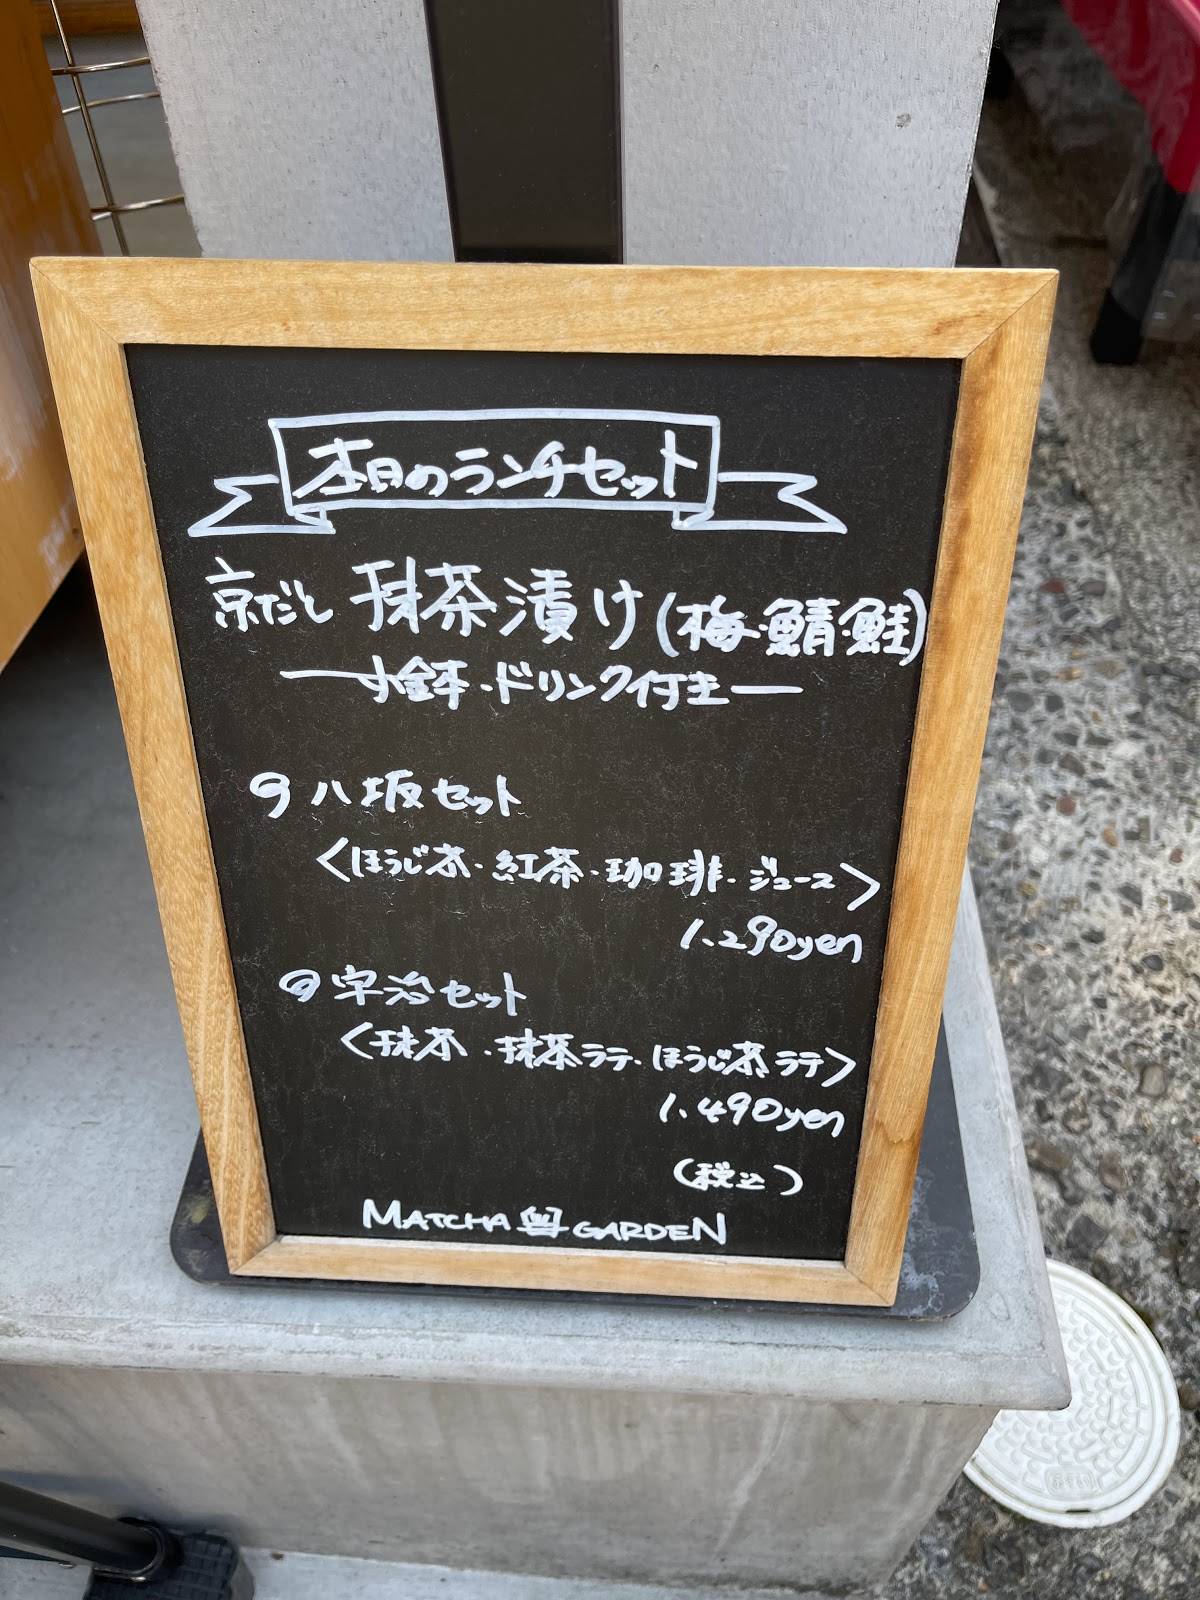 本日のランチセット
京だし 抹茶漬け(梅・鯖・鮭)
小鉢・ドリンク付き
八坂セット
<ほうじ茶・紅茶・珈琲・ジュース>
1,290yen
宇治セット
<抹茶・抹茶ラテ・ほうじ茶ラテ>
1,490yen
(税込)
MATCHA GARDEN